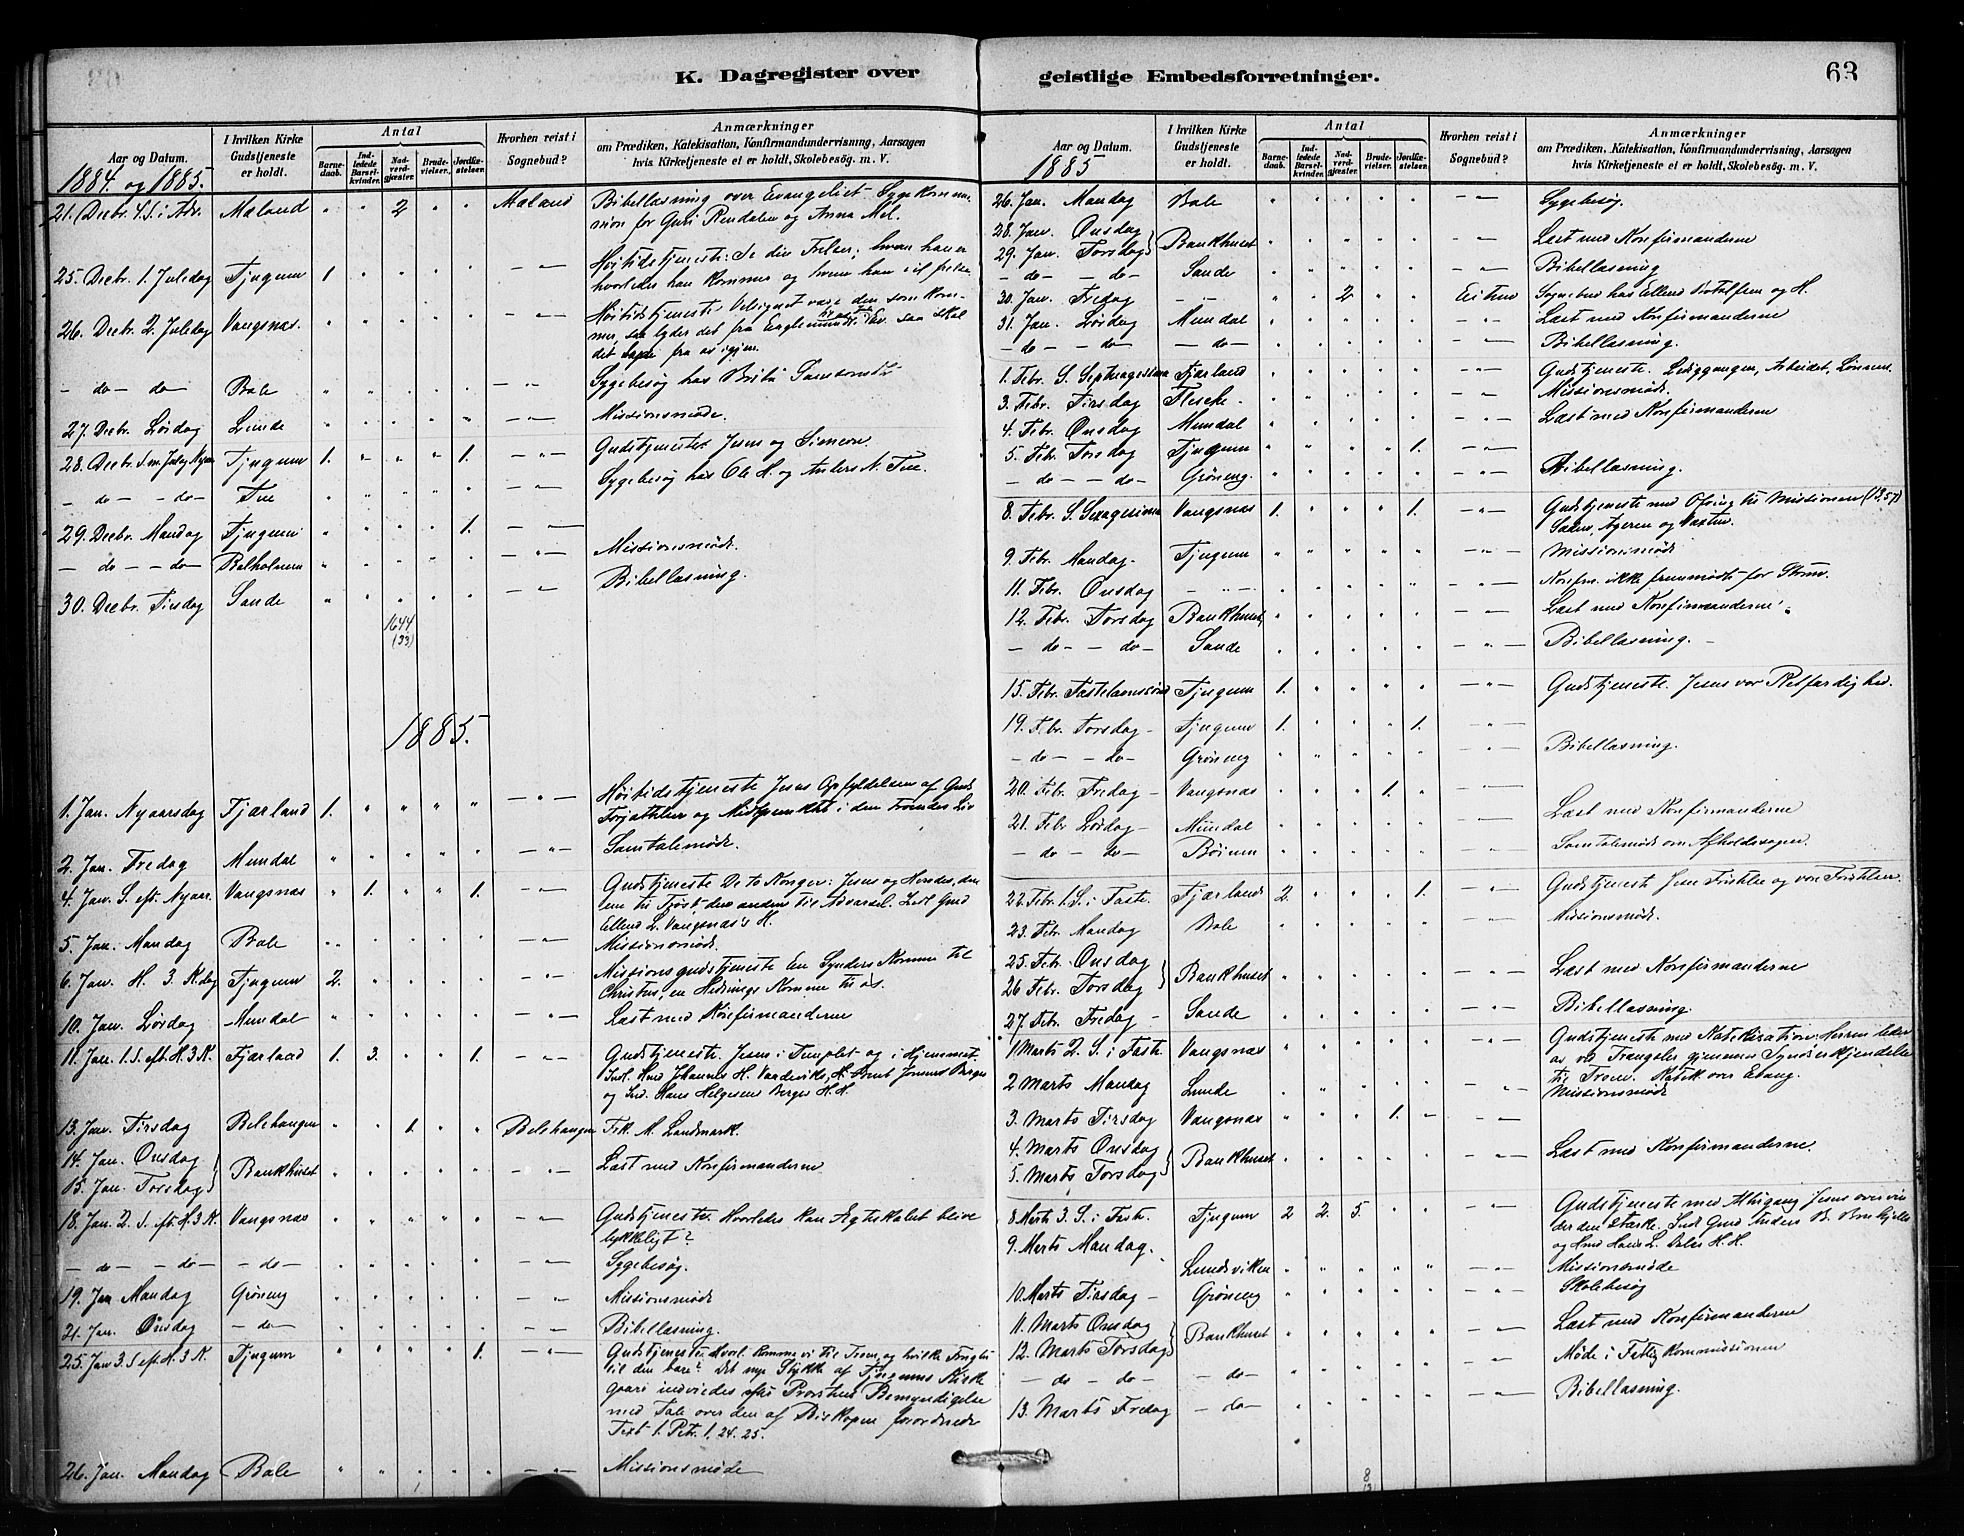 K. Dagregister over
Aar og Datum.
1884 og 1885.
I hvilken Kirke
Gudstjeneste
er holdt.
Antal
Barne-
daab.
Ind-
ledede
Barsel-
kvinder.
Nad-
verd-
gjester.
Brude-
vielser.
Jordfæ-
stelser.
Hvorhen reist i
Sognebud?
Anmærkninger
om Prædiken, Katekisation, Konfirmandundervisning, Aarsagen
hvis Kirketjeneste ei er holdt, Skolebesøg. m. V.
21. Decbr. 4. S. i Adv. Mæland " " 2 " " Mæland Bibellæsning over Evangeliet. Sygekommu-
nion for Guri Rendalen og Anna Mel.
25. Decbr. 1. Juledag Tjugum 1. " " " " — " — Høitidstjeneste: Se din Frelser; hvem han er
hvorledes han kommer og hvem han vil frelse.
26. Decbr. 2. Juledag Vangsnæs. " " " " " — " — Høitidstjeneste. Velsignet være den som kom-
mer, saa lyder det fra Englemunde i Ev. saa skal
det lyde fra os igjen.
— do — do — Bale " " " " " — " — Sygebesøg hos Brita Samsonsdtr
27. Decbr. Lördag Lunde " " " " " — " — Missionsmøde.
28. Decbr. S. m. Jul og Nyaar Tjugum 1. " " " 1. — " — Gudstjeneste Jesus og Simeon
— do — — do — Tue " " " " " — " — Sygebesøg hos Ole H. og Anders N. Tue.
29. Decbr. Mandag Tjugum " " " " 1. — " —
— do — — do — Balholmen " " " " " — " — Missionsmøde.
30. Decbr. Tirsdag Sande " " " " " — " — Bibellæsning.
1644
(33)
1885.
1. Jan. Nyaarsdag Fjærland 1. " " " " — " — Høitidstjeneste Jesus Opfyldelsen af Guds
Forjættelser og Midtpunktet i den Troendes Liv
2. Jan. Fredag Mundal " " " " " — " — Samtalemøde.
4. Jan. S. eft. Nyaar. Vangsnæs " 1. " " 1. — " — Gudstjeneste De to Konger: Jesus og Herodes, den
ene til Trøst den anden til Advarsel. Indl Gmd
Ellend L. Vangsnæs's H.
5. Jan. Mandag Bale " " " " " — " — Missionsmøde.
6. Jan. H. 3 K. dag Tjugum 2. " " " " — " — Missionsgudstjeneste En Synders Komme til
Christus, en Hednings Komme til os.
10. Jan. Lördag Mundal " " " " " — " — Læst med Konfirmanderne
11. Jan. 1. S. eft. H. 3 K. Fjærland 1. 3. " " 1. — " — Gudstjeneste. Jesus i Templet og i Hjemmet.
Indl. Hmd Johannes H. Vardeviks H. Brut Jonsens Berges
og Ind. Hans Helgesen Berges H. H.
13. Jan. Tirsdag Belehaugen " " 1. " " Belehaugen Frk. M. Landmark.
14. Jan. Onsdag
15. Jan. Torsdag Bankhuset " " " " " — " — Læst med Konfirmanderne
18. Jan. 2. S. eft. H. 3 K. Vangsnæs " " " " " — " — Gudstjeneste. Hvorledes kan Ægteskabet blive
lykkeligt?
— do — — do — — do — " " " " " — " — Sygebesøg.
19. Jan Mandag Grøneng " " " " " — " — Missionsmøde
21. Jan. Onsdag — do — " " " " " — " — Bibellæsning.
25. Jan 3. S eft. H. 3 K. Tjugum " " " " 1. — " — Gudstjeneste. Hvorl. komme vi til Troen, og hvilke Frugter
vil den bære? Det nye Stykke af Tjugums Kirke
gaard indviedes efter Provstens Bemyndigelse
med Tale over den af Biskopen forordnede
Text 1. Petr. 1. 24. 25.
26. Jan. Mandag Bale " " " " " — " — Missionsmøde
geistlige Embedsforretninger.
63
Aar og Datum.
1885
I hvilken Kirke
Gudstjeneste
er holdt.
Antal
Barne-
daab.
Ind-
ledede
Barsel-
kvinder.
Nad-
verd-
gjester.
Brude-
vielser.
Jordfæ-
stelser.
Hvorhen reist i
Sognebud?
Anmærkninger
om Prædiken, Katekisation, Konfirmandundervisning, Aarsagen
hvis Kirketjeneste ei er holdt, Skolebesøg. m. V.
26. Jan. Mandag Bale " " " " " — " — Sygebesøg.
28. Jan. Onsdag
29. Jan. Torsdag Bankhuset " " " " " — " — Læst med Konfirmanderne
— do — — do — Sande " " " " " — " — Bibellæsning
30. Jan. Fredag — " — " " 2 " " Eitun Sognebud hos Ellend og H.
31. Jan. Lördag Mundal " " " " " — " — Læst med Konfirmanderne
— do — — do — — do — " " " " " — " — Bibellæsning.
1. Febr. S. Septuagesima Fjærland " " " " " — " — Gudstjeneste. Lediggangen, Arbeidet, Lønnen.
3. Febr. Tirsdag Flesche. " " " " " — " — Missionsmøde
4. Febr. Onsdag Mundal " " " " " — " — Læst med Konfirmanderne
5. Febr. Torsdag Tjugum " " " " 1. — " —
— do — — do — Grøneng. " " " " " — " — Bibellæsning.
8. Febr. S. Sexagesima Vangsnæs 1. " " " 1. — " — Gudstjeneste med Ofring til Missionen (13.57)
Sæden, Ageren og Væxten.
9. Febr. Mandag. Tjugum " " " " " — " — Missionsmøde
11. Febr. Onsdag — " — " " " " " — " — Konfirm. ikke fremmødte for Storm.
12. Febr. Torsdag Bankhuset " " " " " — " — Læst med Konfirmanderne.
— do — — do — Sande " " " " " — " — Bibellæsning. —
15. Febr. Fastelavnssönd Tjugum 1. " " " " — " — Gudstjeneste. Jesus vor Retfærdighed.
19. Febr. Torsdag — Tjugum 1. " " " 1. — " —
— do — — do — Grøneng " " " " " — " — Bibellæsning.
20. Febr. Fredag — Vangsnæs " " " 1. " — " —
21. Febr Lördag — Mundal " " " " " — " — Læst med Konfirmanderne
— do — — do — Bøium " " " " " — " — Samtalemøde om Afholdssagen.
22. Febr. 1. S. i Faste. Fjærland 2. " " " 1. — " — Gudstjeneste Jesu Fristelse og vore Fristelser.
23. Febr. Mandag Bale " " " " " — " — Missionsmøde.
25. Febr. Onsdag
26 Febr. Torsdag Bankhuset " " " " " — " — Læst med Konfirmanderne
27. Febr. Fredag — Sande " " " " " — " — Bibellæsning
1 Marts 2. S. i Faste. Vangsnæs " " " " " — " — Gudstjeneste med Katekisation. Herren leder
os ved Trængsler gjennem Syndserkjendelse
til Troen. Katek. over Evang.
2 Marts Mandag Lunde " " " " " — " — Missionsmøde
3. Marts Tirsdag Vangsnæs " " " 1. " — " —
4. Marts Onsdag
5. Marts Torsdag Bankhuset " " " " " — " — Læst med Konfirmanderne.
8 Marts 3. S. i Faste. Tjugum 2 2. 5. " " — " — Gudstjeneste med Altergang Jesus overvin
der den Stærke. Indl Gmd Anders B.
og Hmd Hans L. Dales H. H.
9. Marts Mandag. Lundsviken " " " " " — " — Missionsmøde
10. Marts Tirsdag — Grøneng " " " " " — " — Skolebesøg
11. Marts Onsdag
12. Marts Torsdag Bankhuset " " " " " — " — Læst med Konfirmanderne
— do — — do — — do — " " " " " — " — Møde i Fattigkommissionen
13. Marts Fredag — do — " " " " " — " — Bibellæsning.
8